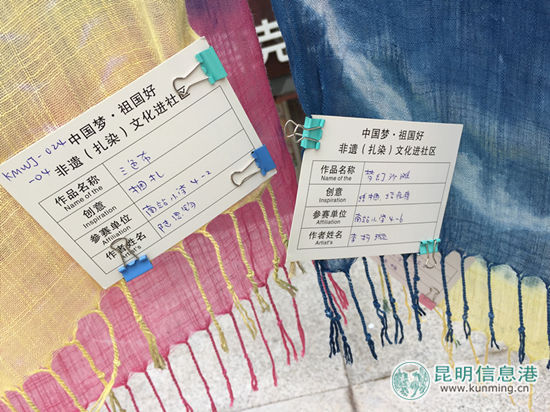 KMWJ-024
-04
中国梦·祖国好
非遗（扎染）文化进社区
作品名称 三色布
Name of the
创意 捆扎
Inspiration
参赛单位 南站小学4-2
Affiliation
作者姓名
Artist's
中国梦·祖国好
非遗（扎染）文化进社区
作品名称 梦幻沙滩
Name of the
创意
Inspiration
参赛单位 南站小学4-6
Affiliation
作者姓名
Artist's
昆明信息港
www.kunming.cn